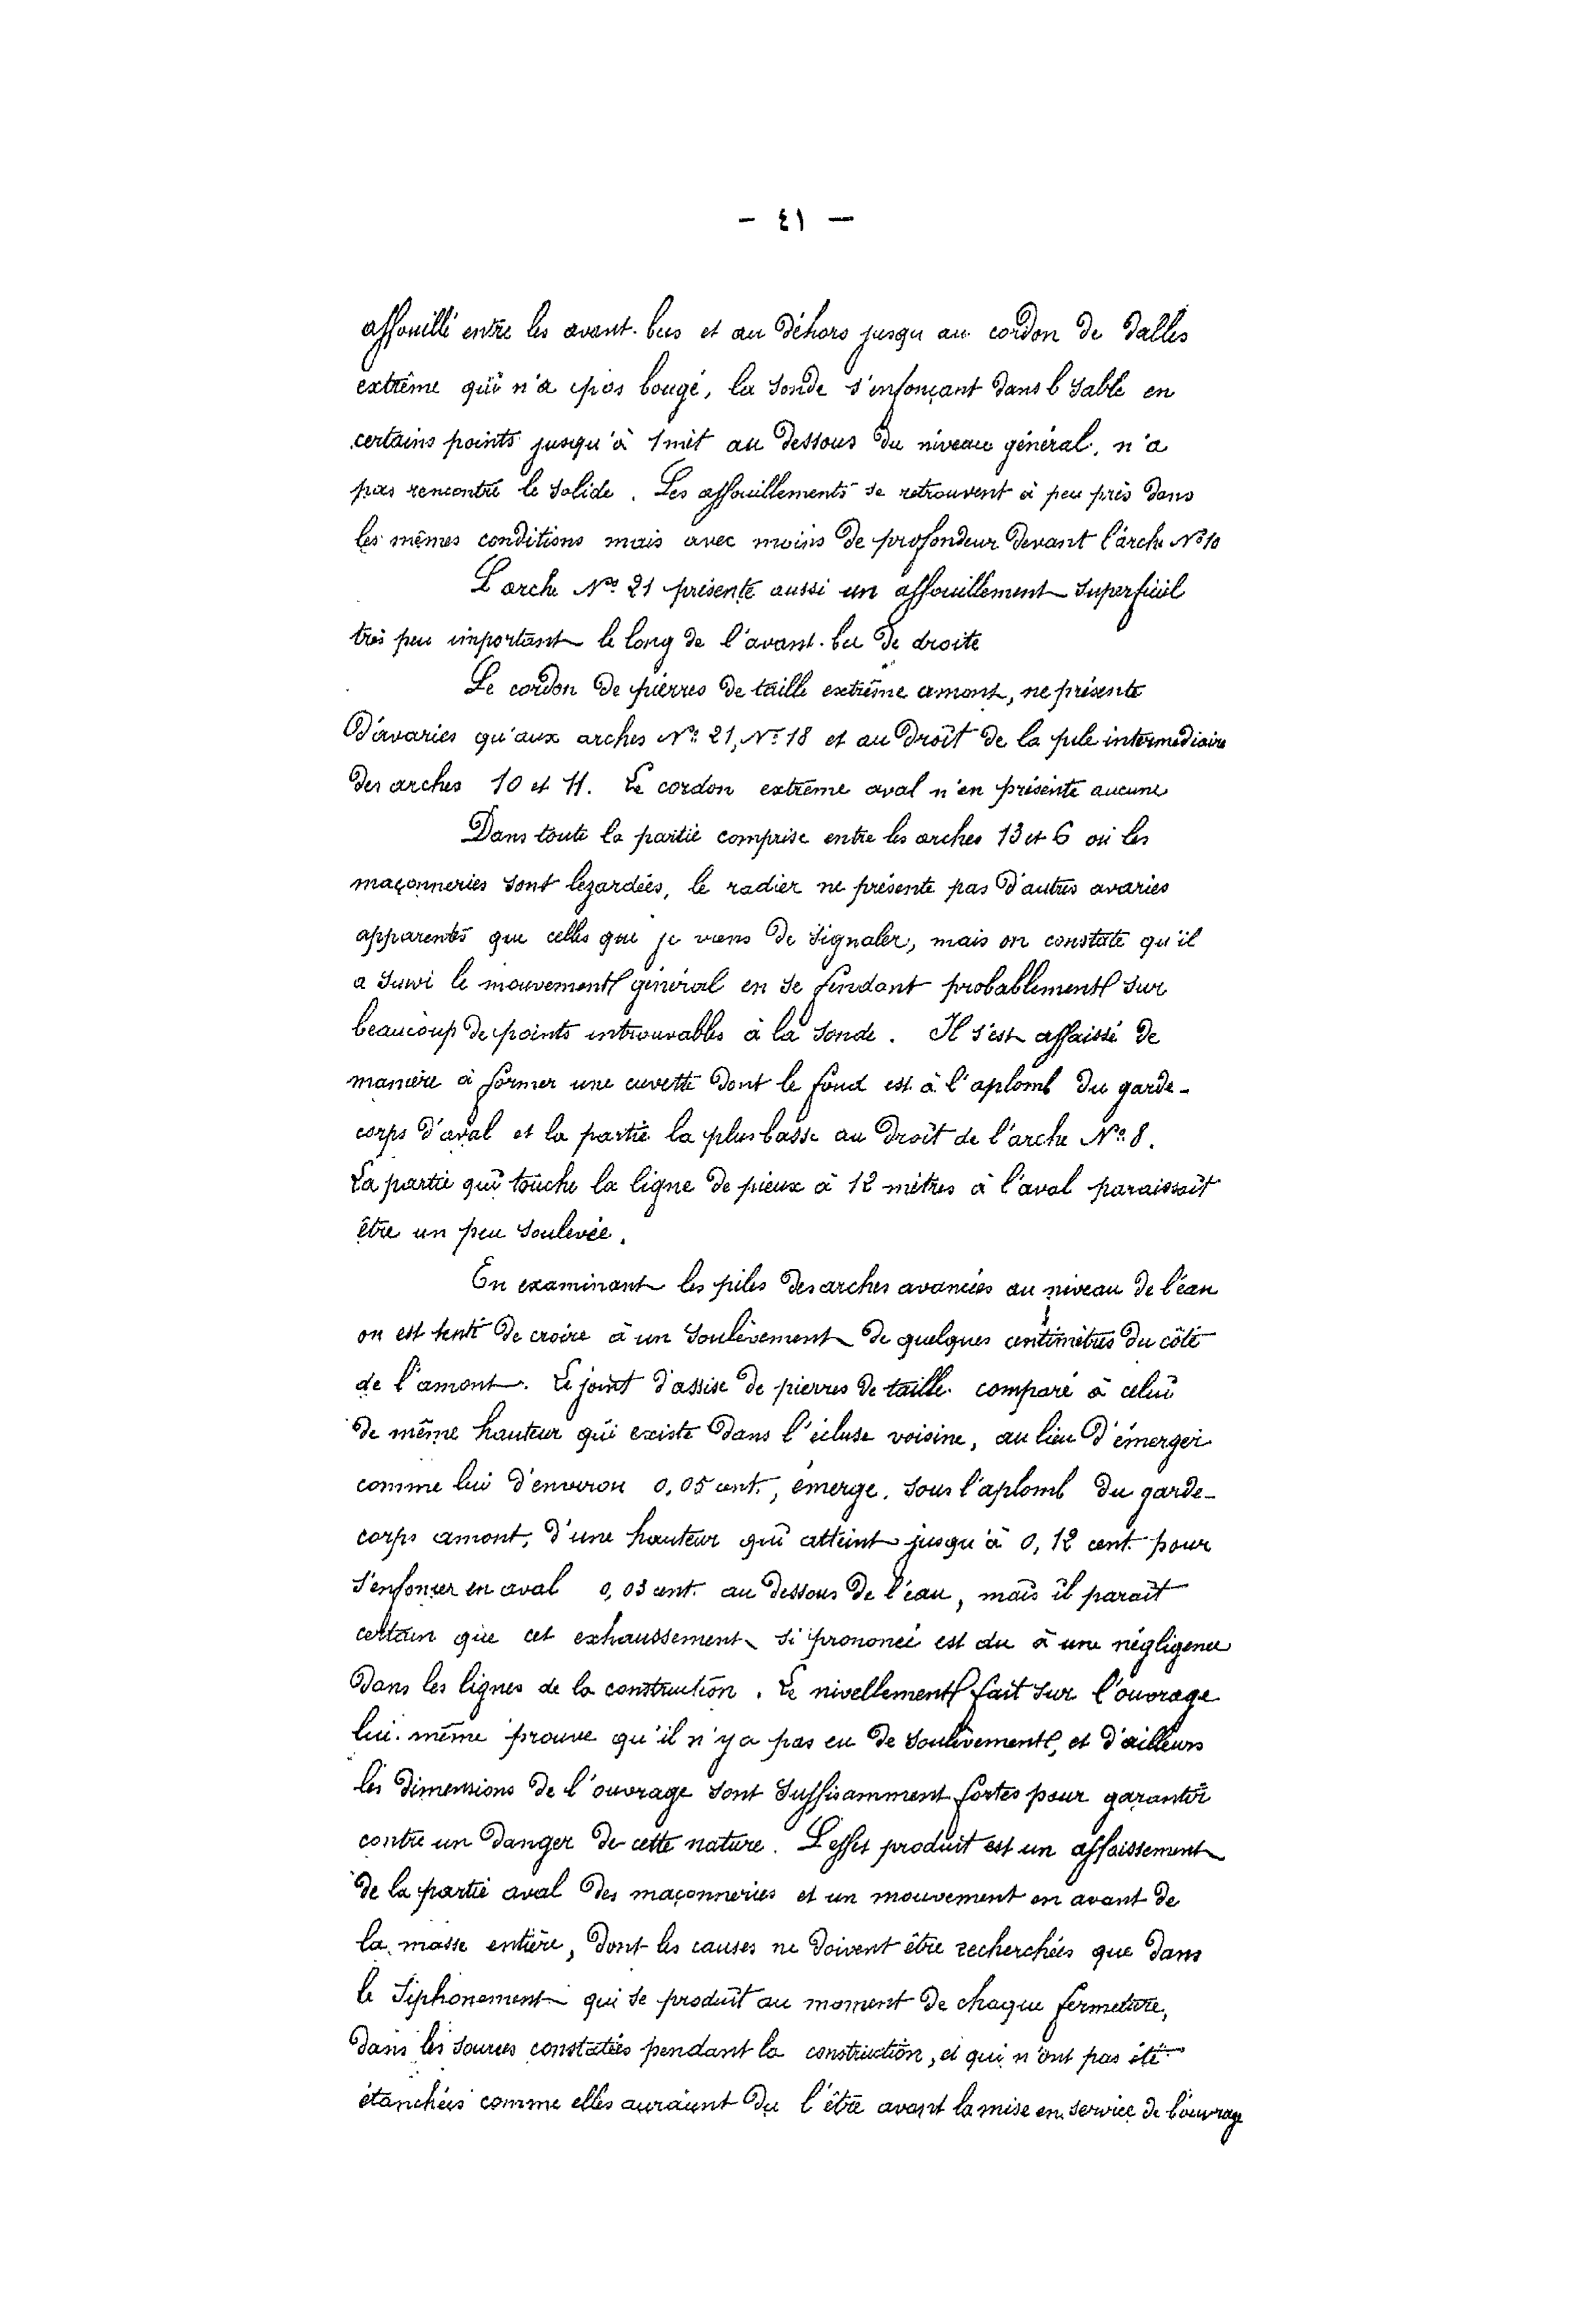 — ٤١ —
affouillé entre les avant-becs et au déhors jusqu au cordon de dalles
extrême qui n'a pas bougé, la sonde s'enfonçant dans le sable en
certains points jusqu'à 1 mèt au dessous du niveau général, n'a
pas rencontré le solide. Les affouillements se retrouvent à peu près dans
les mêmes conditions mais avec moins de profondeur devant l'arche Nº 10
L'arche Nº 21 présente aussi un affouillement superficiel
très peu important le long de l'avant-bec de droite
Le cordon de pierres de taille extrême amont, ne présente
d'avaries qu'aux arches Nº 21, Nº 18 et au droit de la pile intermédiaire
des arches 10 et 11. Le cordon extrême aval n'en présente aucune
Dans toute la partie comprise entre les arches 13 et 6 où les
maçonneries sont lezardées, le radier ne présente pas d'autres avaries
apparentes que celles que je viens de signaler, mais on constate qu'il
a suivi le mouvement général en se fendant probablement sur
beaucoup de points introuvables à la sonde. Il s'est affaissé de
manière à former une cuvette dont le fond est à l'aplomb du garde-
corps d'aval et la partie la plus basse au droit de l'arche Nº 8.
La partie qui touche la ligne de pieux à 12 mètres à l'aval paraissait
être un peu soulevée.
En examinant les piles des arches avancées au niveau de l'eau
on est tenté de croire à un soulèvement de quelques centimètres du côté
de l'amont. Le joint d'assise de pierres de taille comparé à celui
de même hauteur qui existe dans l'écluse voisine, au lieu d'émerger
comme lui d'environ 0,05 cent., émerge, sous l'aplomb du garde-
corps amont, d'une hauteur qui atteint jusqu'à 0,12 cent. pour
s'enfoncer en aval 0,03 cent. au dessous de l'eau, mais il parait
certain que cet exhaussement si prononcé est du à une négligence
dans les lignes de la construction. Le nivellement fait sur l'ouvrage
lui-même prouve qu'il n'y a pas eu de soulèvement, et d'ailleurs
les dimensions de l'ouvrage sont suffisamment fortes pour garantir
contre un danger de cette nature. L'effet produit est un affaissement
de la partie aval des maçonneries et un mouvement en avant de
la masse entière, dont les causes ne doivent être recherchées que dans
le siphonement qui se produit au moment de chaque fermeture,
dans les sources constatées pendant la construction, et qui n'ont pas été
étanchées comme elles auraient du l'être avant la mise en service de l'ouvrage